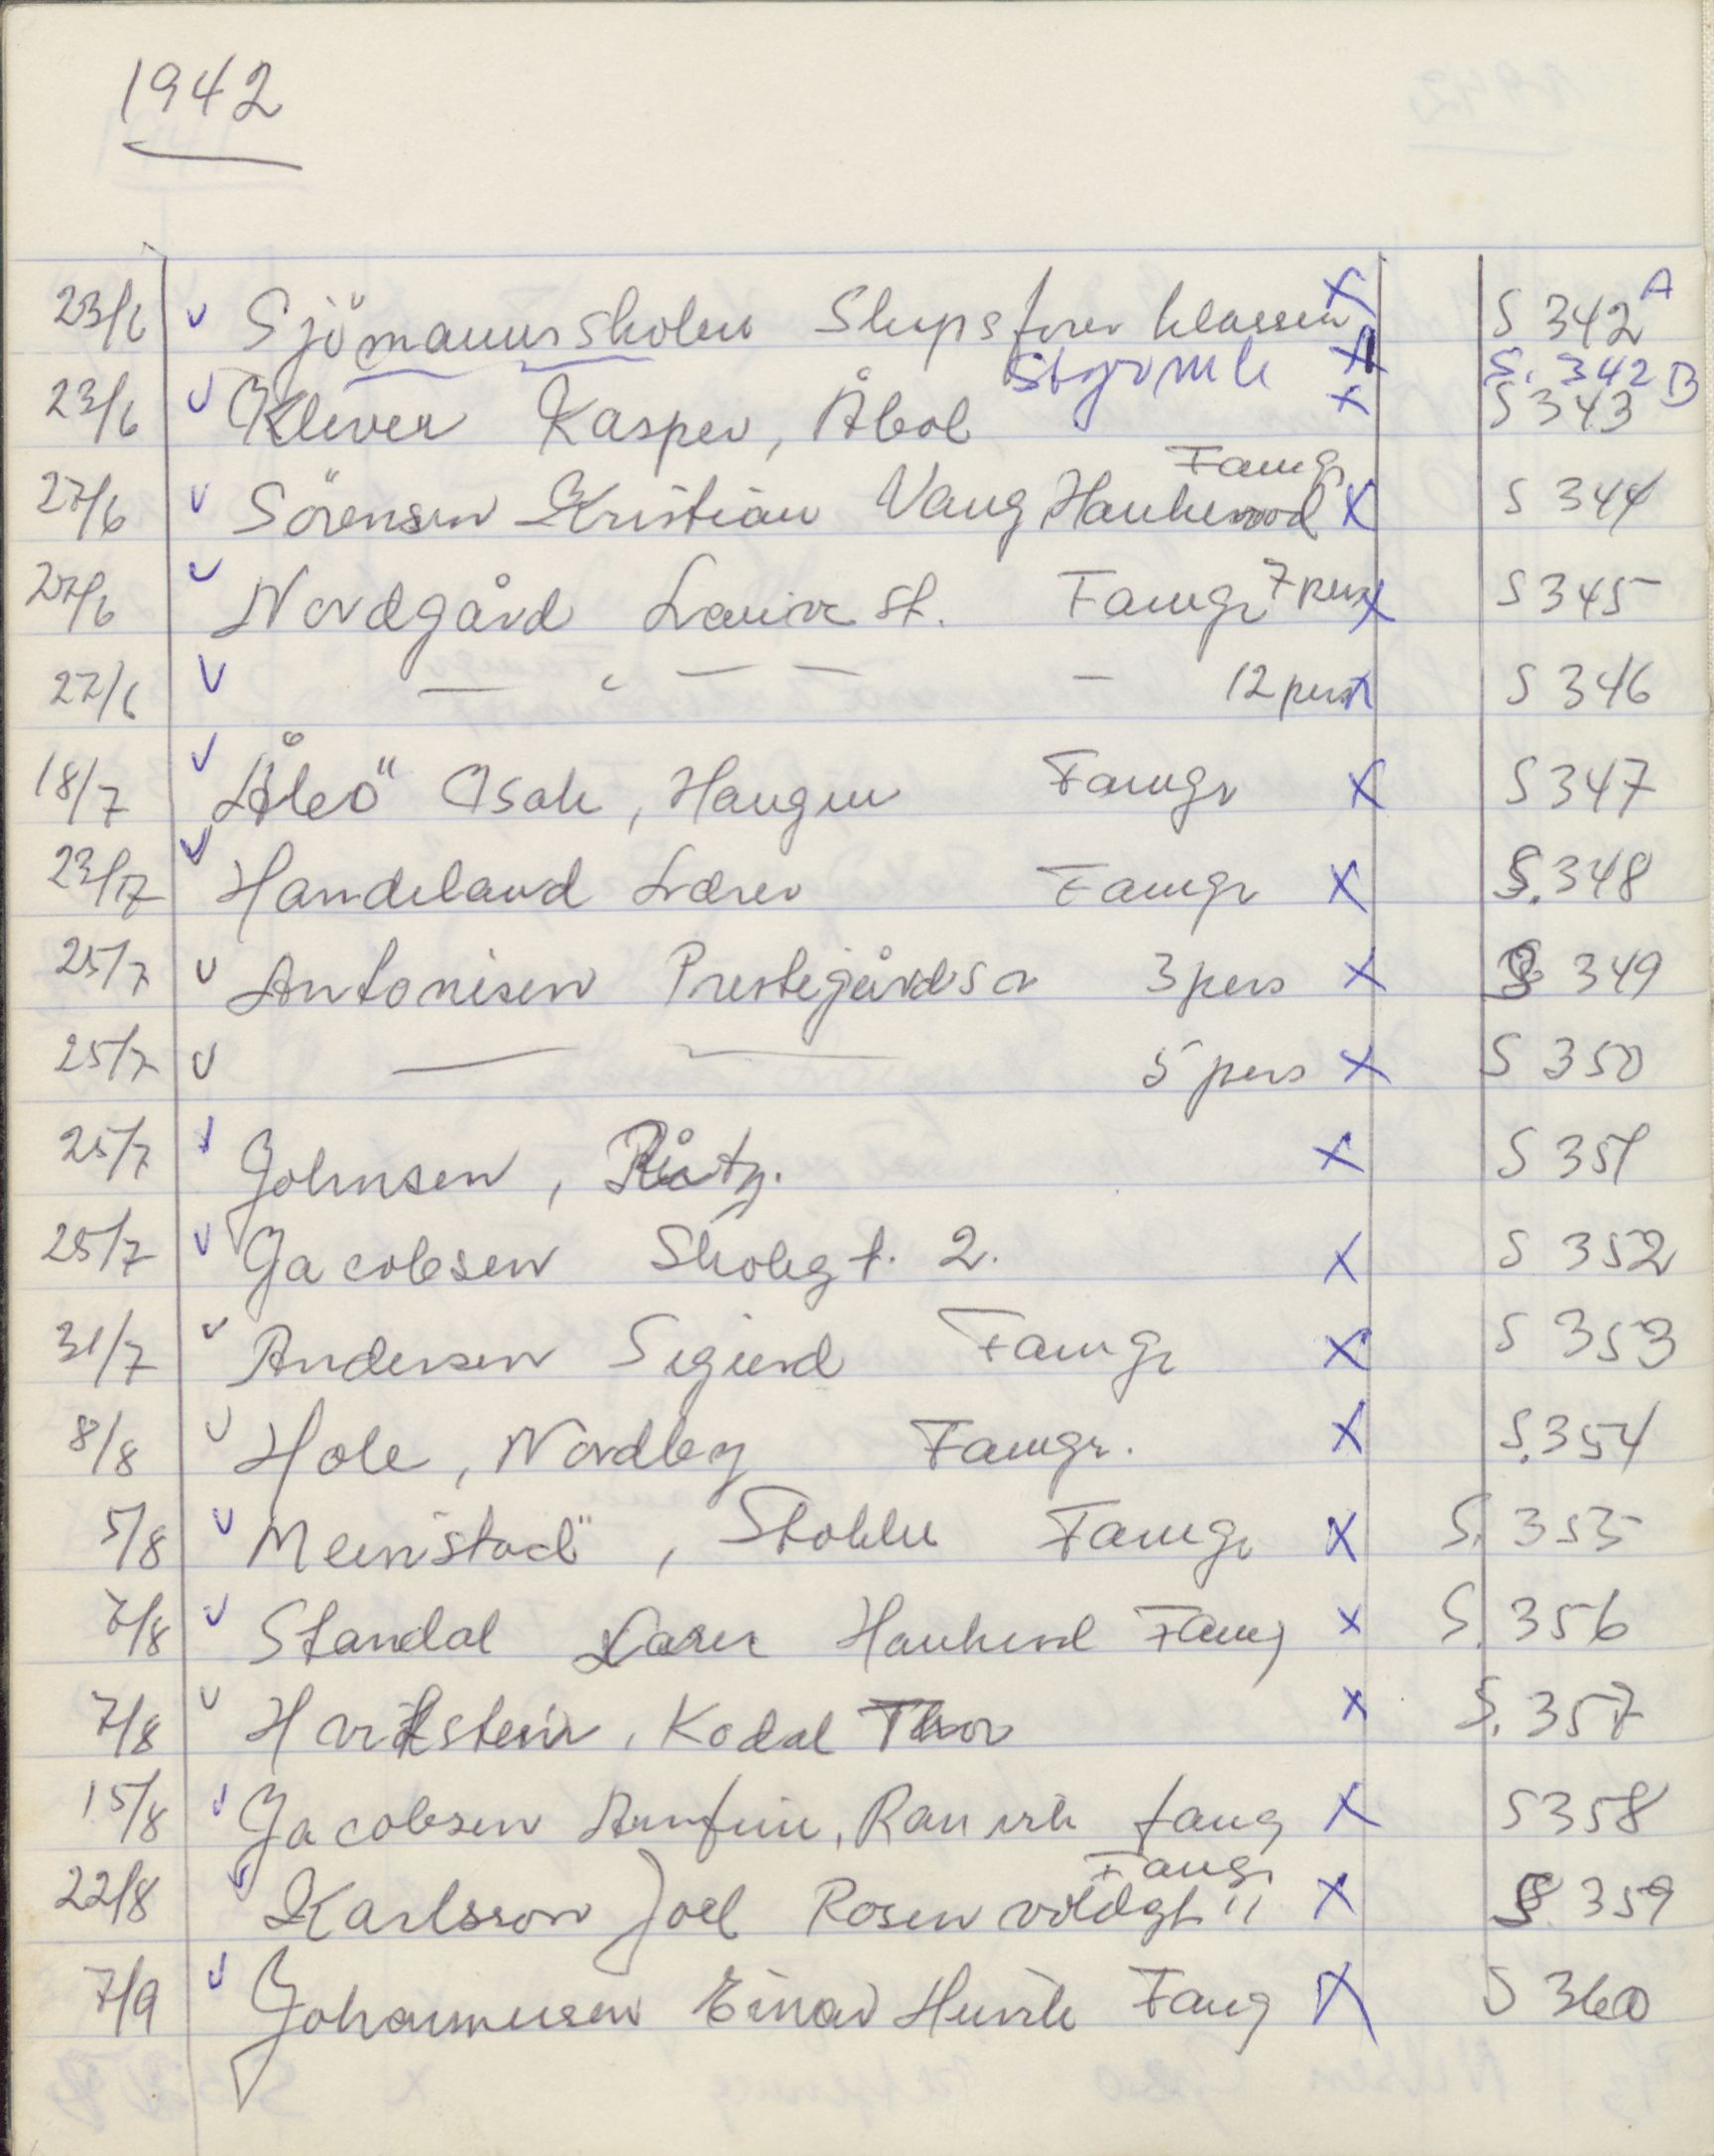 1942
23/6 v Sjömannsskolen Skipsfører klassen X S 342 A
Styrmk X S. 342 B
23/6 v Klever Kasper, Åbol X S 343
Famgr
27/6 v Sörensen Kristian Vaug Haukerød X S 344
27/6 v Nordgård Laurir st. Famgr 7 pers X S 345
27/6 v — " — — — 12 pers X S 346
18/7 v Åbö" Isak, Haugen Famgr X S 347
23/7 v Handeland Lærer Famgr X S. 348
25/7 v Antonisen Prestegårdsa 3 pers X S 349
25/7 v — — 5 pers X S 350
25/7 v Johnsen, X S 351
25/7 v Jacobsen Skolegt. 2. X S 352
31/7 v Andersen Sigurd Famgr X S 353
8/8 v Hole, Nordby Famgr. X S. 354
5/8 v Meinstad", Stokke Famgr X S. 355
7/8 v Standal Lærer Haukerød Famg X S. 356
7/8 v Hvitstein, Kodal Thor X S. 357
15/8 v Jacobsen Arnfinn, Ranvik famg X S 358
Famgr
22/8 v Karlsson Joel Rosenvoldgt 11 X S 359
7/9 v Johannessen Einar Hunsle Famg X S 360